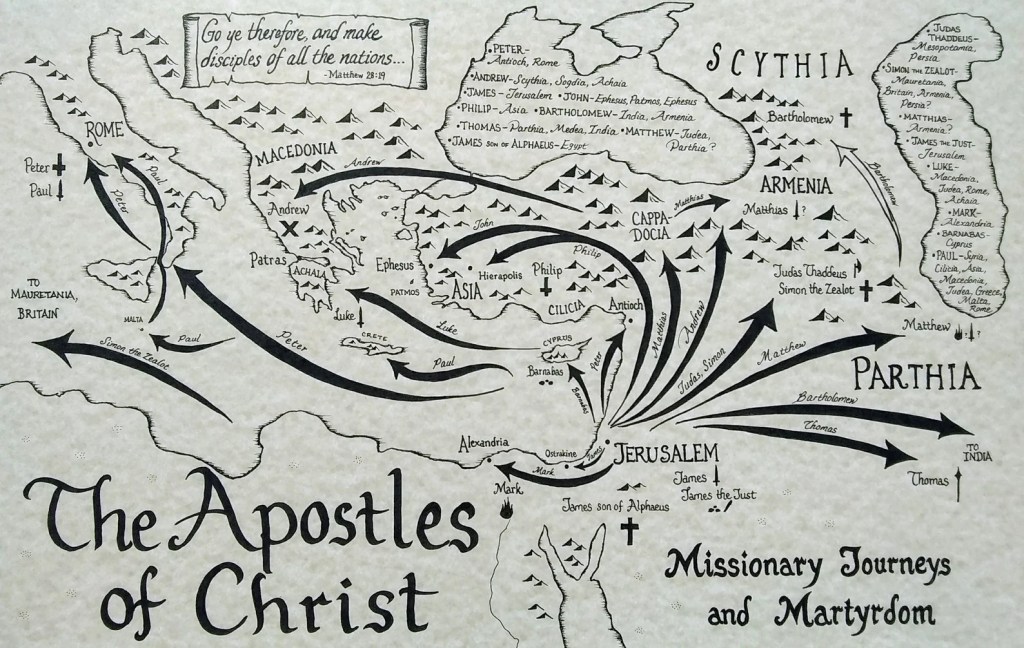 Go ye therefore, and make
disciples of all the nations...
-Matthew 28:19
• PETER-
Antioch, Rome
• ANDREW-Scythia, Sogdia, Achaia
• JAMES - Jerusalem • JOHN-Ephesus, Patmos, Ephesus
• PHILIP-Asia • BARTHOLOMEW-India, Armenia
• THOMAS-Parthia, Medea, India • MATTHEW-Judea,
Parthia?
• JAMES SON OF ALPHAEUS-Egypt
SCYTHIA
• JUDAS
THADDEUS-
Mesopotamia,
Persia
• SIMON THE ZEALOT-
Mauretania,
Britain, Armenia,
Persia?
• MATTHIAS-
Armenia?
• JAMES THE JUST-
Jerusalem
• LUKE-
Macedonia,
Judea, Rome,
Achaia
• MARK-
Alexandria
• BARNABAS-
Cyprus
• PAUL-Syria,
Cilicia, Asia,
Macedonia,
Judea, Greece,
Malta,
Rome
Bartholomew
Bartholomew
ROME
Peter
Paul
Peter
Paul
MACEDONIA
Andrew
Andrew
Patras
ACHAIA
Luke
CAPPA-
DOCIA
Matthias
ARMENIA
Matthias ?
John
Philip
Ephesus
PATMOS
Hierapolis
Philip
ASIA
CILICIA
Antioch
Judas Thaddeus
Simon the Zealot
TO
MAURETANIA,
BRITAIN
MALTA
Paul
Simon the Zealot
Peter
Luke
CRETE
Paul
CYPRUS
Barnabas
Barnabas
Peter
Matthias
Andrew
Judas, Simon
Matthew
Matthew ?
PARTHIA
Bartholomew
Thomas
TO
INDIA
Thomas
Alexandria
Ostrakine
James
Mark
Mark
JERUSALEM
James
James the Just
James son of Alphaeus
The Apostles
of Christ
Missionary Journeys
and Martyrdom